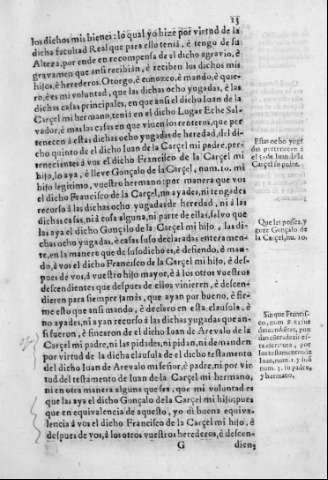 25
los dichos mis bienes: lo qual yo hize por virtud de la
dicha facultad Real que para ello tenia, è tengo de su
Alteza, por ende en recompensa de el dicho agravio, è
gravamen que ansi recibian, è reciben los dichos mis
herederos, è herederes. Otorgo, è conozco, è mando, è quie-
ro, è es mi voluntad, que las dichas ocho yugadas, è las
dichas casas principales, en que ansi el dicho Iuan de la
Carçel mi hermano, tenia en el dicho Lugar Eche Sal-
vador, è mas las casas en que viven los renteros, que per-
tenecen à estas dichas ocho yugadas de heredad, del di-
cho quinto de el dicho Iuan de la Carçel mi padre, per-
tenecientes à vos el dicho Francisco de la Carçel mi
hijo, lo aya, è lleve Gonçalo de la Carçel, num. 10. mi
hijo legitimo, vuestro hermano: por manera que vos
el dicho Francisco de la Carçel, no ayades, ni tengades
recorso à las dichas ocho yugadas de heredad, ni à las
dichas casas, ni à cosa alguna, ni parte de ellas, salvo que
las aya el dicho Gonçalo de la Carçel mi hijo, las di-
chas ocho yugadas, è casas suso declaradas enteramen-
te, en la manera que de suso dicho es, è defiendo, è man-
do, à vos el dicho Francisco de la Carçel mi hijo, è des-
pues de vos, à vuestro hijo mayor, è à los otros vuestros
descendientes que despues de ellos vinieren, è descen-
dieren para siempre jamàs, que ayan por bueno, è fir-
me esto que ansi mando, è declaro en esta clausula, è
no ayades, ni ayan recorso à las dichas yugadas que an-
si fueron, è fincaron de el dicho Iuan de Arevalo de la
Carçel mi padre, ni las pidades, ni pidan, ni demanden
por virtud de la dicha clausula de el dicho testamento
del dicho Iuan de Arevalo mi señor, è padre, ni por vir-
tud del testamento de Iuan de la Carçel mi hermano,
ni en otra manera alguna que sea, que mi voluntad es
que las aya el dicho Gonçalo de la Carçel mi hijo; pues
que en equivalencia de aquesto, yo di buena equiva-
lencia à vos el dicho Francisco de la Carçel mi hijo, è
despues de vos, à los otros vuestros herederos, è descen-
G dien-
Estas ocho yuga-
das pertenecen à
el 5. de Iuan de la
Carçel su padre.
Que les possea, y
goze Gonçalo de
la Carçel, nu. 10.
Sin que Francis-
co, num. 9. ni sus
descendientes, por
las testamentos de
Iuan, num. 1. y Iuã
num. 5. su padre,
y hermano.